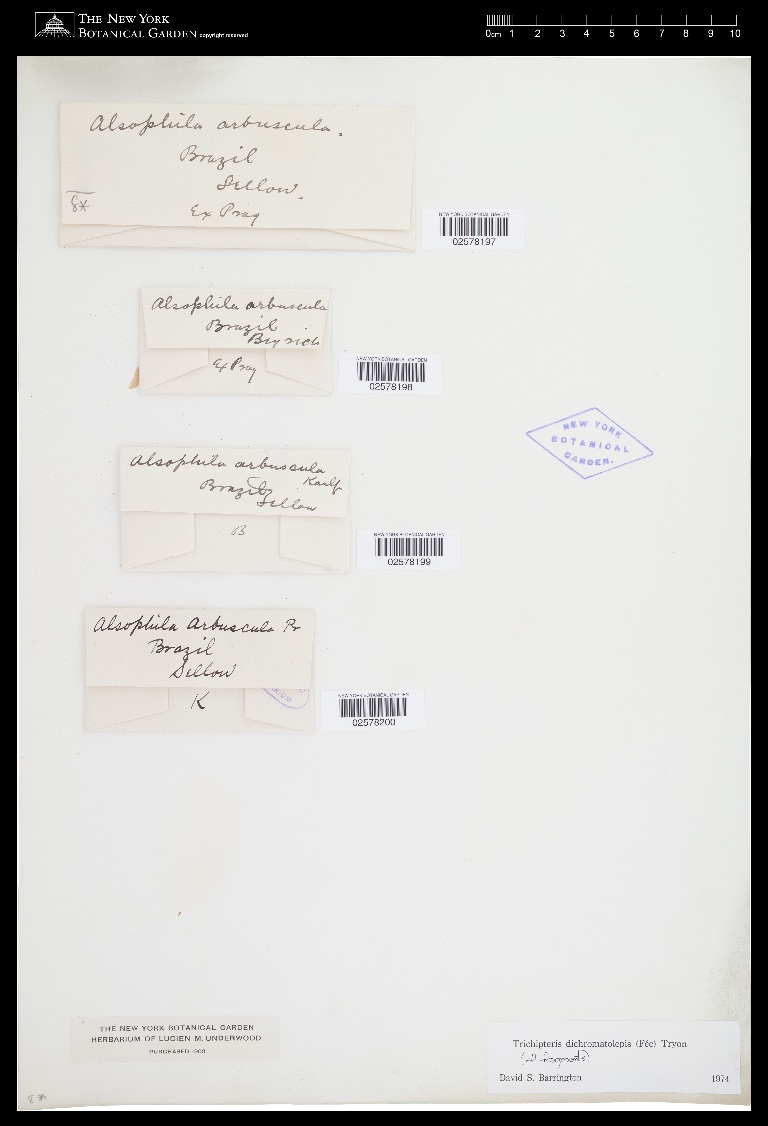 THE NEW YORK
BOTANICAL GARDEN copyright reserved
0cm 1 2 3 4 5 6 7 8 9 10
Alsophila arbuscula.
Brazil
Sellow.
Ex Prag
8*
NEW YORK BOTANICAL GARDEN
02578197
Alsophila arbuscula
Brazil
Beyrich
Ex Prag
NEW YORK BOTANICAL GARDEN
02578198
NEW YORK
BOTANICAL
GARDEN.
Alsophila arbuscula
Kaulf
Brazil
Sellow
B
NEW YORK BOTANICAL GARDEN
02578199
Alsophila Arbuscula Pr
Brazil
Sellow
K
NEW YORK BOTANICAL GARDEN
02578200
THE NEW YORK BOTANICAL GARDEN
HERBARIUM OF LUCIEN M. UNDERWOOD
PURCHASED 1903
Trichipteris dichromatolepis (Fée) Tryon
(all fragments)
David S. Barrington 1974
8*